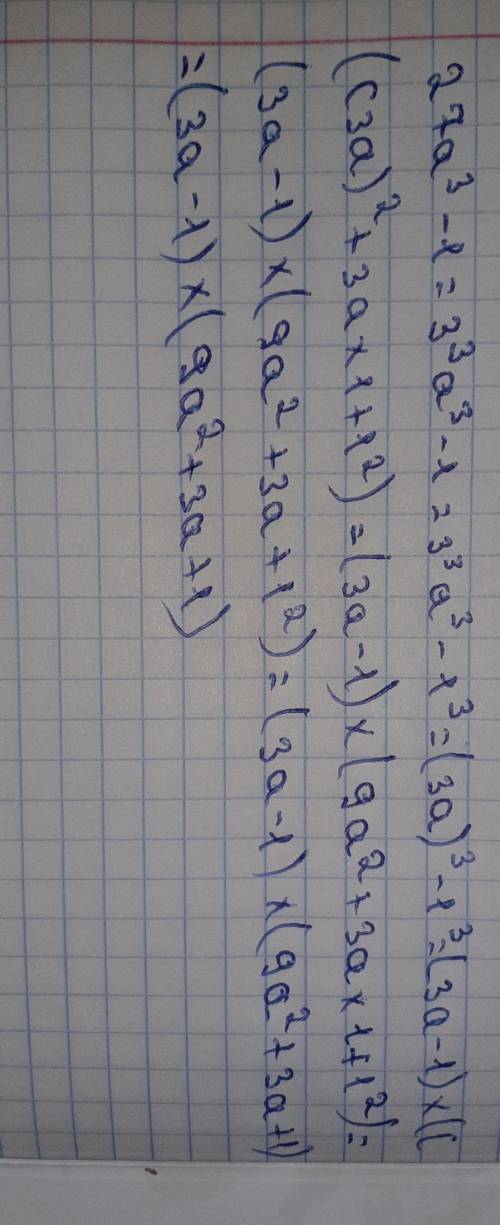 27a³ - 1 = 3³a³ - 1 = 3³a³ - 1³ = (3a)³ - 1³ = (3a - 1) × ((
((3a)² + 3a × 1 + 1²) = (3a - 1) × (9a² + 3a × 1 + 1²) =
(3a - 1) × (9a² + 3a + 1²) = (3a - 1) × (9a² + 3a + 1)
= (3a - 1) × (9a² + 3a + 1)